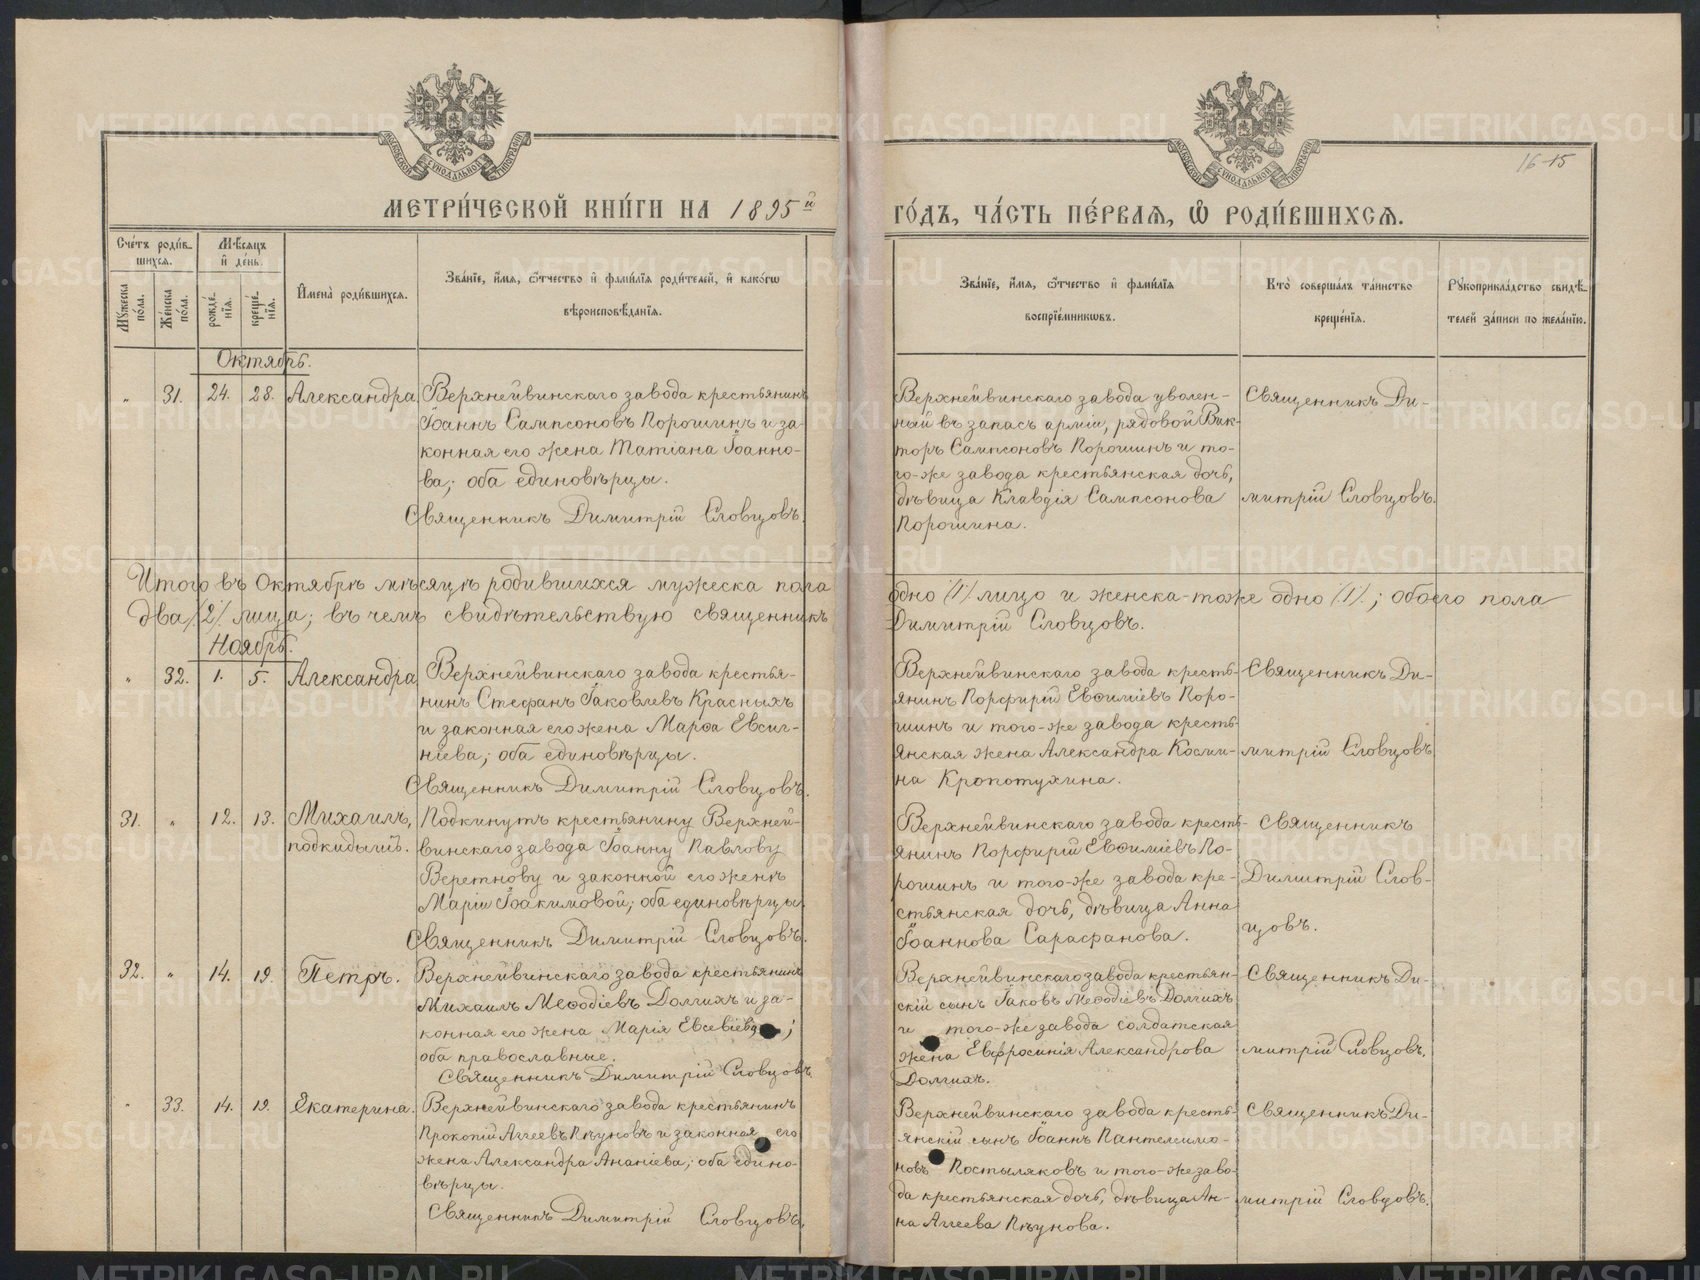 МЕТРИ́ЧЕСКОЙ КНИ́ГИ НА 1895й
ГО́ДЪ, ЧА́СТЬ ПЕ́РВАѦ, Ѡ҆ РОДИ́ВШИХСѦ.
16-15
Сче́тъ роди́в-
шихсѧ.
Мꙋ́жеска по́ла.
Же́нска по́ла.
Мѣ́сѧцъ
и҆ де́нь.
рожде́нїѧ.
креще́нїѧ.
И҆мена̀ роди́вшихсѧ.
Зва́нїе, и҆́мѧ, ѻ҆́тчество и҆ фами́лїѧ роди́телей, и҆ како́гѡ
вѣроисповѣ́данїѧ.
Зва́нїе, и҆́мѧ, ѻ҆́тчество и҆ фами́лїѧ
воспрїе́мникѡвъ.
Кто̀ соверша́лъ та́инство
креще́нїѧ.
Рꙋкоприкла́дство свидѣ́-
телей за́писи по жела́нїю.
Октябрь.
" 31. 24. 28. Александра.
Верхнейвинскаго завода крестьянинъ
Іоаннъ Сампсоновъ Порошинъ и за-
конная его жена Татіана Іоанно-
ва; оба единовѣрцы.
Священникъ Димитрій Словцовъ.
Верхнейвинскаго завода уволен-
ный въ запасъ арміи, рядовой Вик-
торъ Сампсоновъ Порошинъ и то-
го-же завода крестьянская дочь,
дѣвица Клавдія Сампсонова
Порошина.
Священникъ Ди-
митрій Словцовъ.
Итого въ Октябрѣ мѣсяцѣ родившихся мужеска пола одно /1/ лицо и женска-тоже одно /1/.; обоего пола
два /2/ лица; въ чемъ свидѣтельствую священникъ Димитрій Словцовъ.
Ноябрь.
" 32. 1. 5. Александра
Верхнейвинскаго завода крестья-
нинъ Стефанъ Іаковлевъ Красныхъ
и законная его жена Марѳа Евсиг-
ніева; оба единовѣрцы.
Священникъ Димитрій Словцовъ.
Верхнейвинскаго завода кресть-
янинъ Порфирій Евѳиміевъ Поро-
шинъ и того-же завода кресть-
янская жена Александра Косми-
на Кропотухина.
Священникъ Ди-
митрій Словцовъ
31. " 12. 13. Михаилъ,
подкидышъ.
Подкинутъ крестьянину Верхней-
винскаго завода Іоанну Павлову
Веретнову и законной его женѣ
Маріи Іоакимовой; оба единовѣрцы.
Священникъ Димитрій Словцовъ.
Верхнейвинскаго завода кресть-
янинъ Порфирій Евѳиміевъ По-
рошинъ и того-же завода кре-
стьянская дочь, дѣвица Анна
Іоаннова Сарафанова.
Священникъ
Димитрій Слов-
цовъ.
32. " 14. 19. Петръ.
Верхнейвинскаго завода крестьянинъ
Михаилъ Меѳодіевъ Долгихъ и за-
конная его жена Марія Евсевіева;
оба православные.
Священникъ Димитрій Словцовъ.
Верхнейвинскаго завода крестьян-
скій сынъ Іаковъ Меѳодіевъ Долгихъ
и того-же завода солдатская
жена Евфросинія Александрова
Долгихъ.
Священникъ Ди-
митрій Словцовъ.
" 33. 14. 19. Екатерина.
Верхнейвинскаго завода крестьянинъ
Прокопій Аггеевъ Пѣуновъ и законная его
жена Александра Ананіева; оба едино-
вѣрцы.
Священникъ Димитрій Словцовъ.
Верхнейвинскаго завода кресть-
янскій сынъ Іоаннъ Пантелеимо-
новъ Постыляковъ и того-же заво-
да крестьянская дочь, дѣвица Ан-
на Аггеева Пѣунова.
Священникъ Ди-
митрій Словцовъ.
METRIKI.GASO-URAL.RU